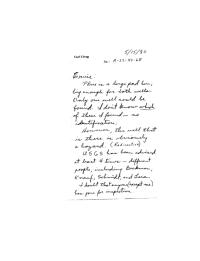 5/15/90
Re: A-22-40-68
Ernie:
There is a large pad here,
big enough for both wells.
Only one well could be
found. I don't know which
of these I found — no
identification.
However, the well that
is there is obviously
a hazard. (Radioactive)
USGS has been advised
at least 4 times — different
people, including
and
I doubt that anyone (except me)
has gone for inspection